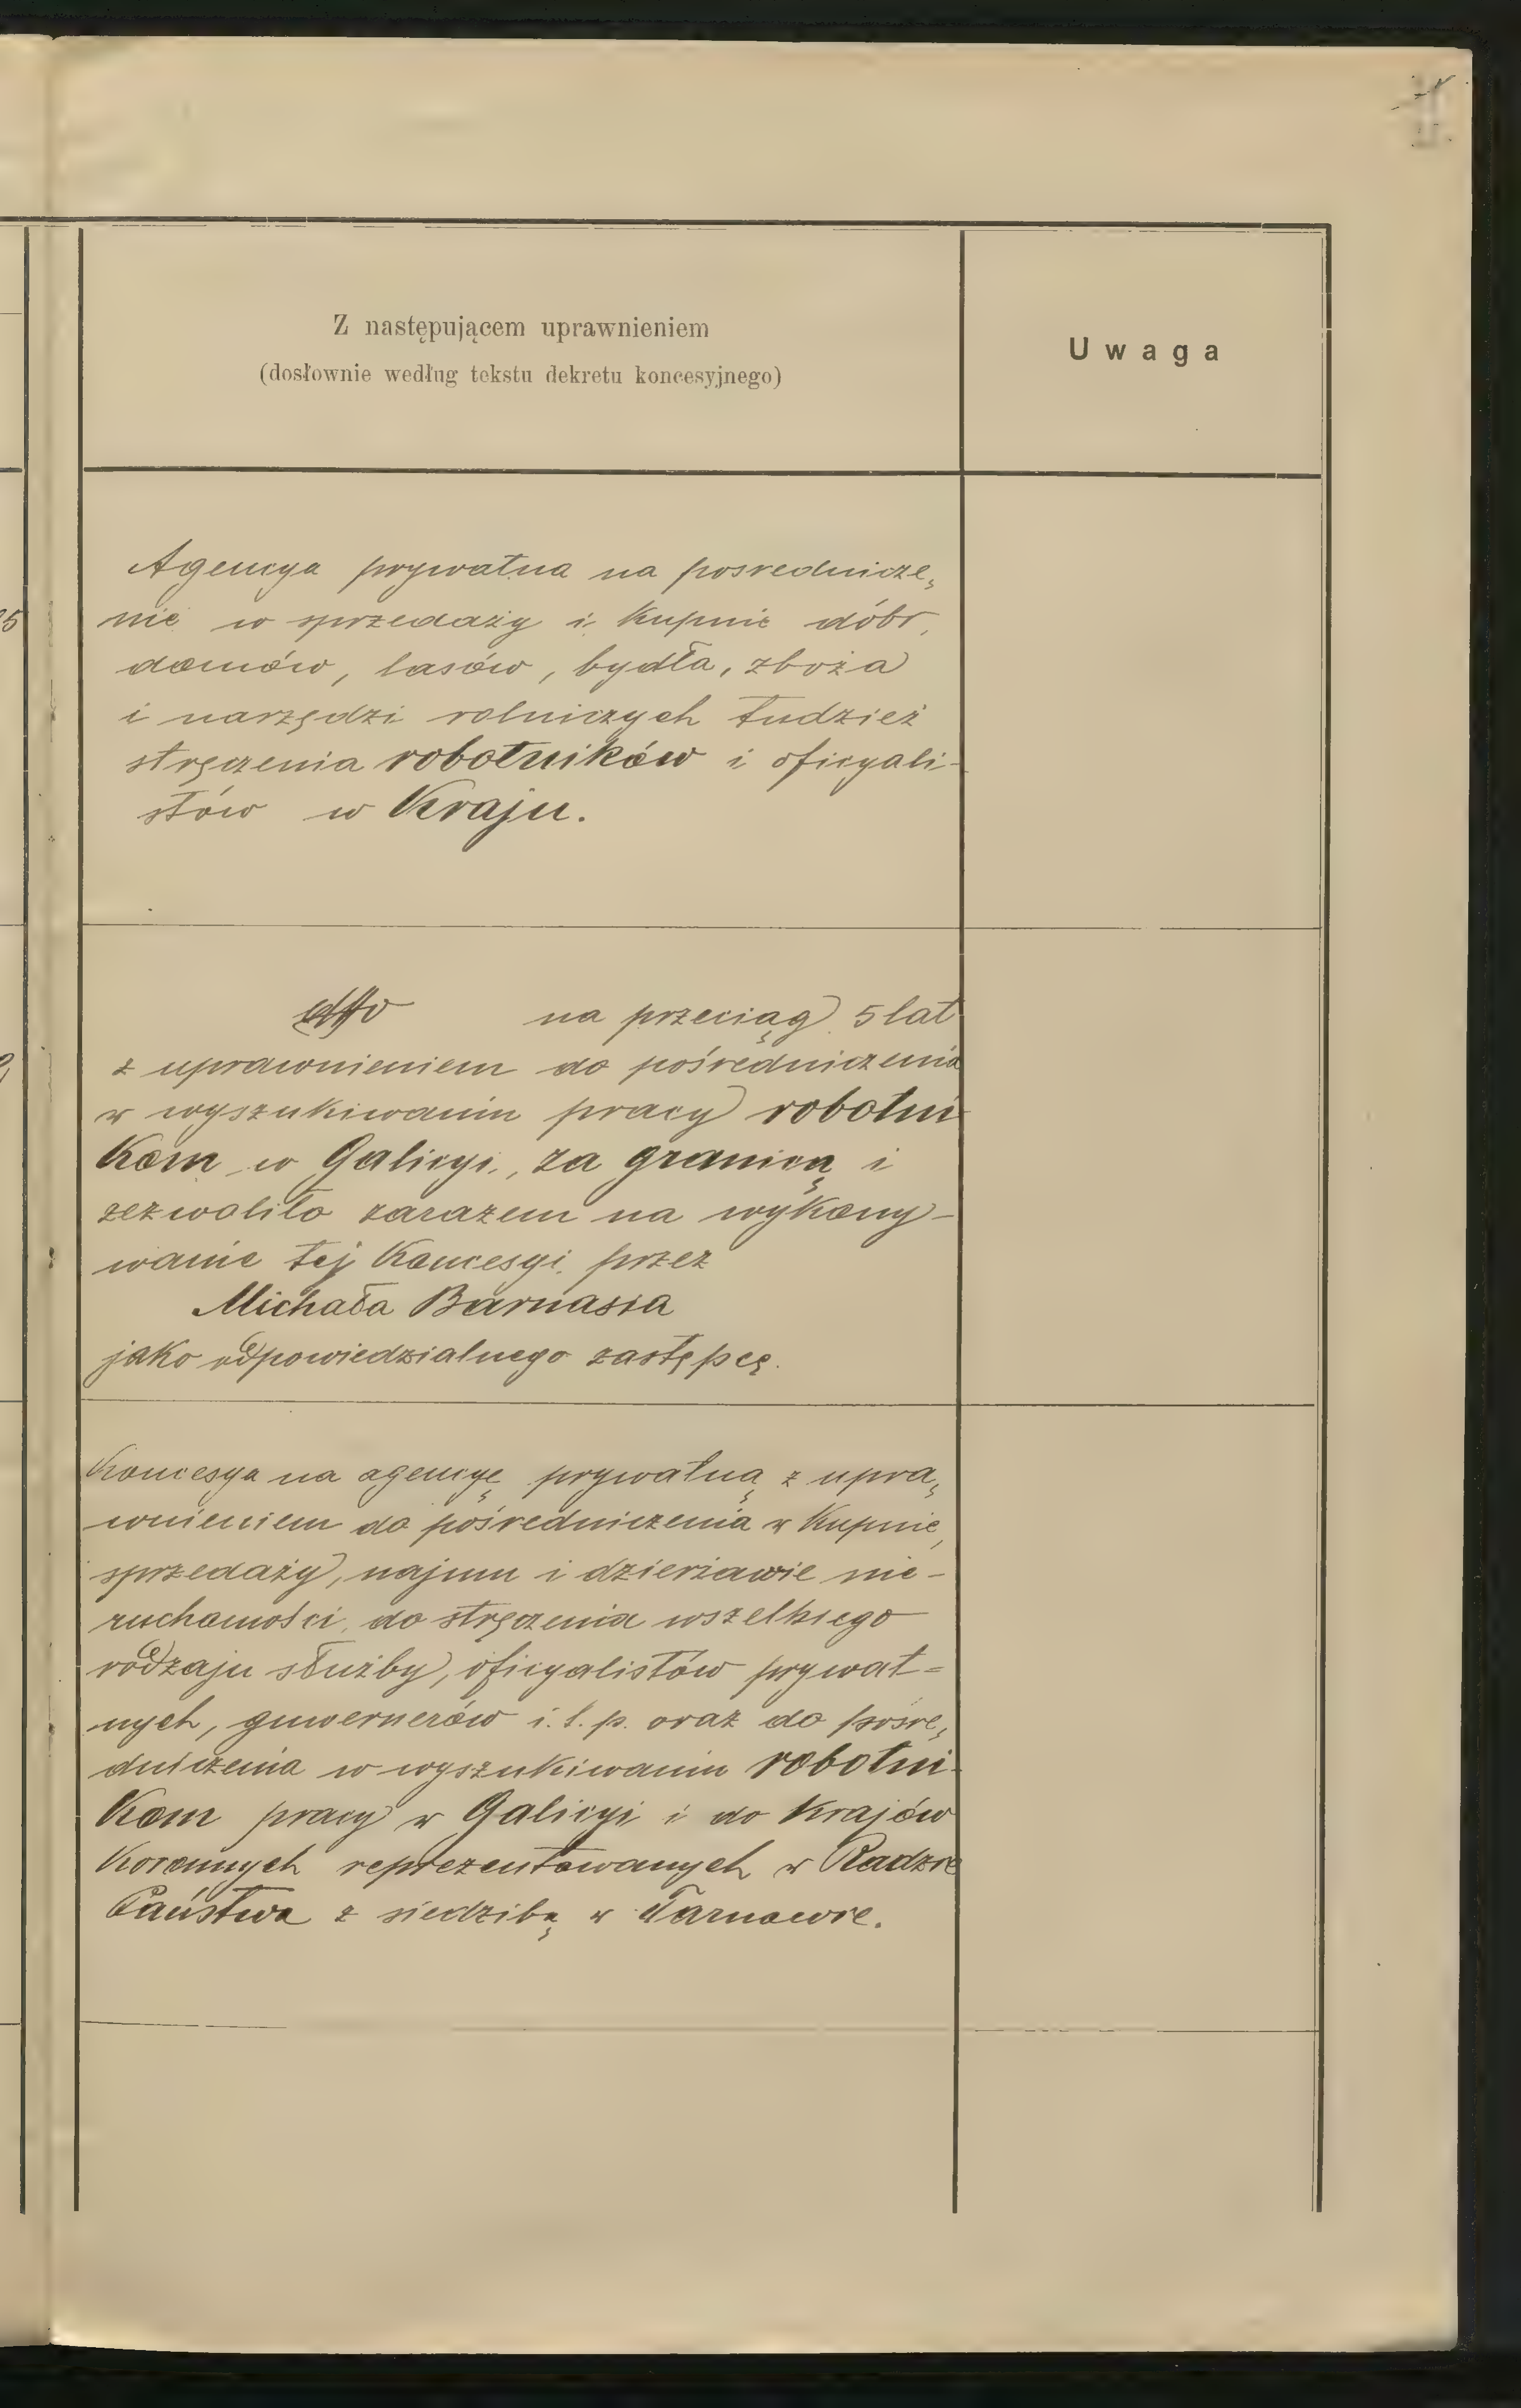 Z następującem uprawnieniem
(dosłownie według tekstu dekretu koncesyjnego)
Uwaga
Agencya prywatna na posrednicze„
nie w sprzedaży i kupnie dóbr,
domów, lasów, bydła, zboża
i narzędzi rolniczych tudzież
stręczenia robotników i oficyali-
stów w Kraju.
dtto na przeciąg 5 lat
z uprawnieniem do pośredniczenia
w wyszukiwaniu pracy robotni
kom w Galicyi, za granicą i
zezwoliło zarazem na wykony-
wanie tej koncesyi przez
Michała Barnasia
jako odpowiedzialnego zastępcę.
Koncesya na agencyę prywatną z upra„
wnieniem do pośredniczenia w kupnie,
sprzedaży, najmu i dzierżawie nie-
ruchomości, do stręczenia wszelkiego
rodzaju służby, oficyalistów prywat=
nych, guwernerów i.t.p. oraz do pośre„
dniczenia w wyszukiwaniu robotni-
kom pracy w Galicyi i do krajów
koronnych reprezentowanych w Radzie
Państwa z siedzibą w Tarnowie.